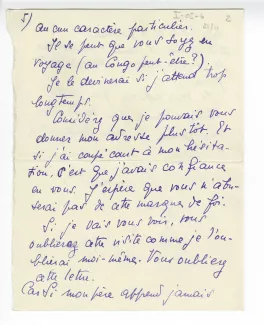 5)
aucun caractère particulier.
Je se peut que vous soyez en
voyage (au Congo peut-être?).
Je le devinerai si j'attend trop
longtemps.
Considérez que je pouvais vous
donner mon adresse plus tôt. Et
si j'ai coupé court à mon hésita-
tion, c'est que j'avais confiance
en vous. J'espère que vous n'abu-
serai pas de cette marque de foi.
Si je vais vous voir, vous
oublierez cette visite comme je l'ou-
blierai moi-même. Vous oubliez
cette lettre.
Car si mon père apprend jamais